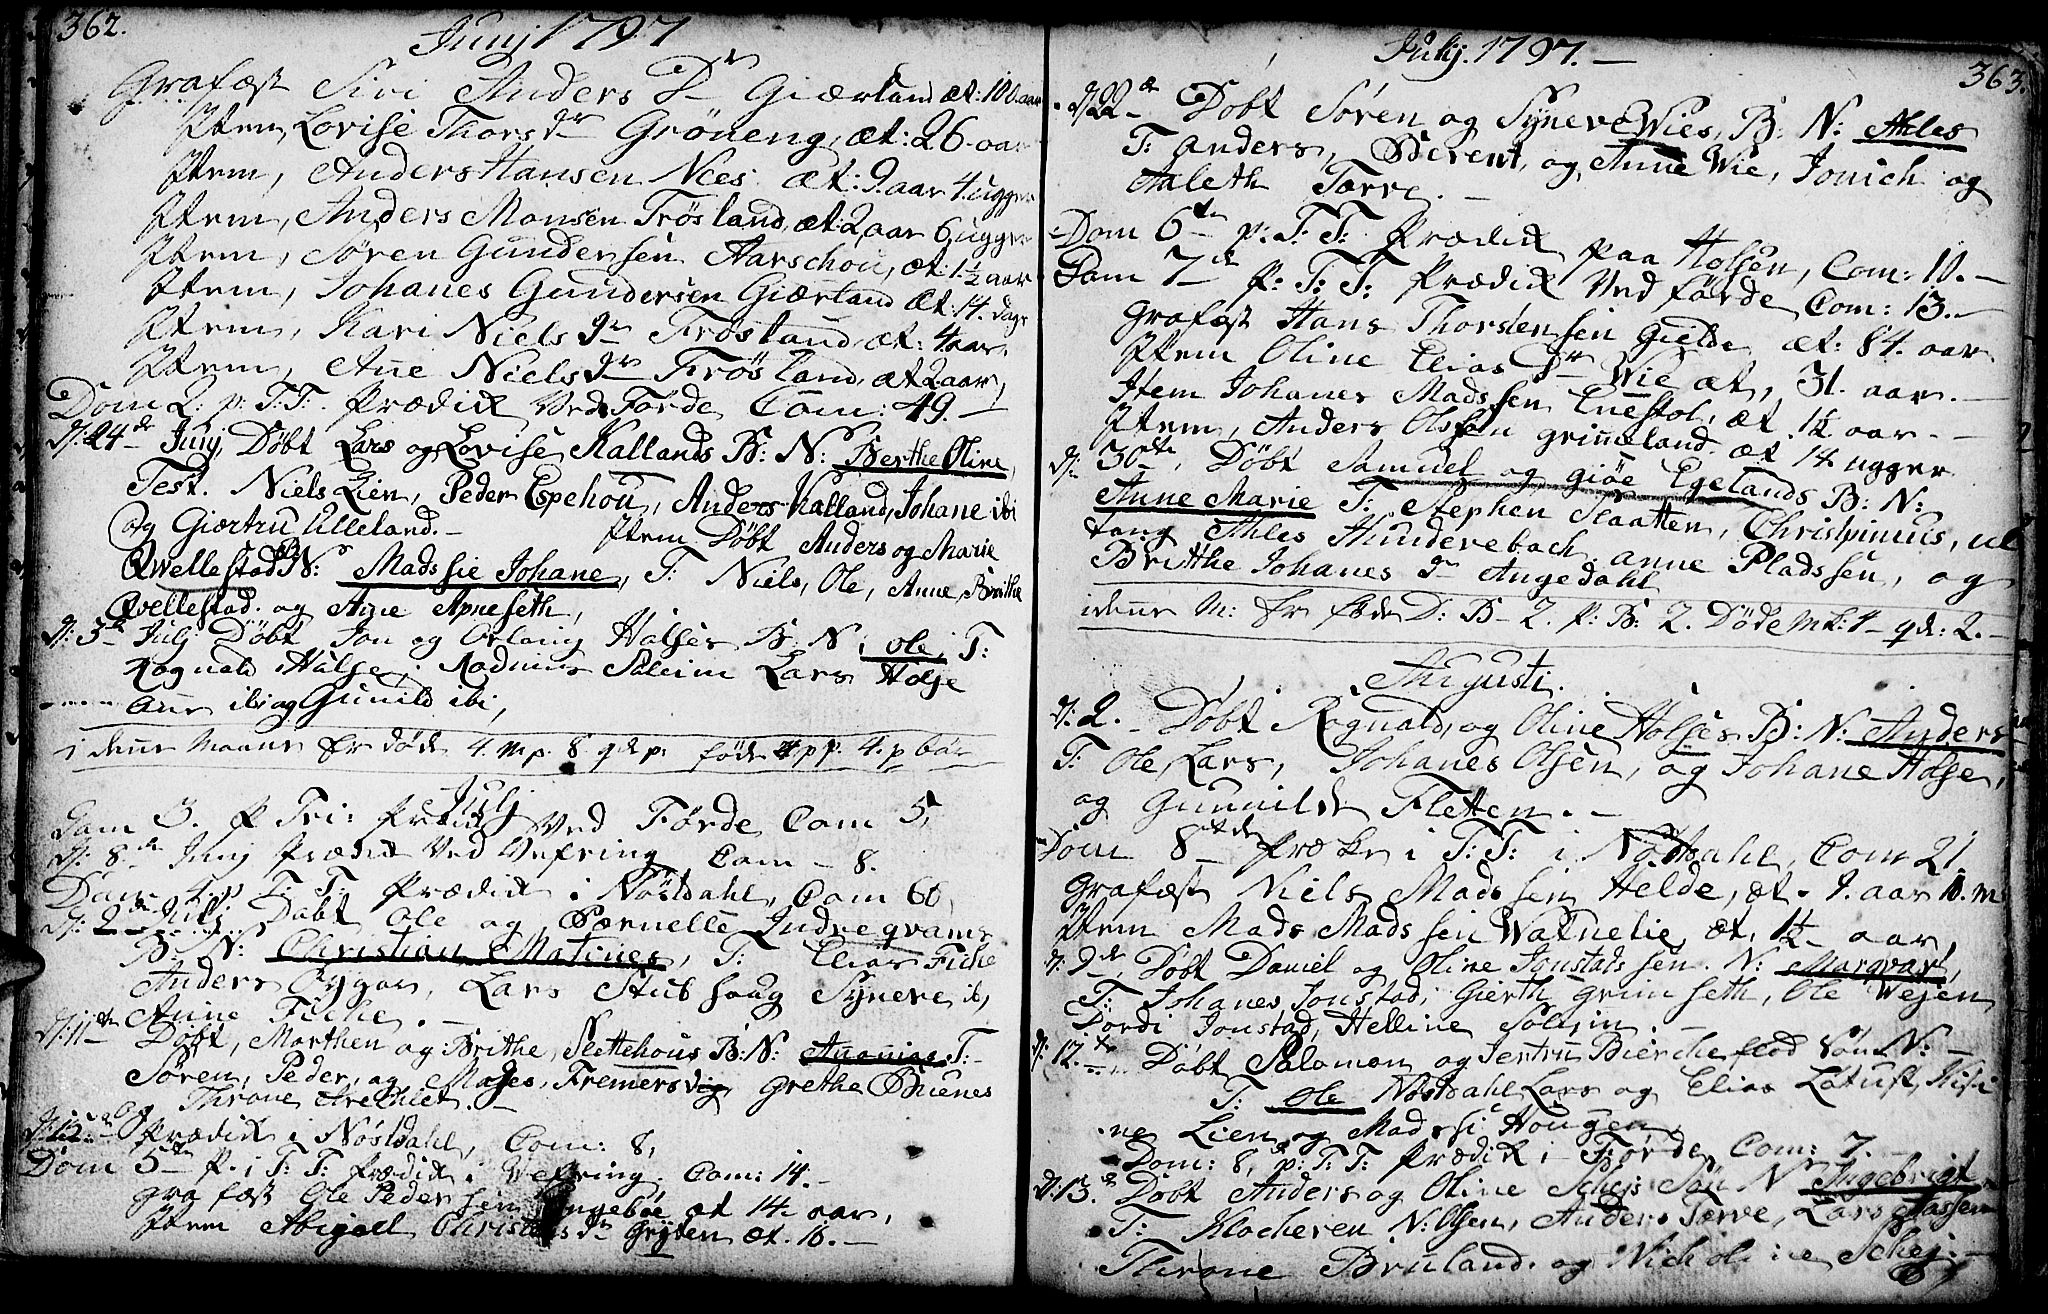 362.
Junj 1797
Grafæst Siri Anders D Giærland æt: 100 aar
Jtem, Lovise Thorsdr Gröneng, æt: 26. aar
Jtem, Anders Hansen Nees. æt: 9. aar 4. ugger
Jtem, Anders Monsen Frösland, æt: 2 aar 6 ugger
Jtem, Søren Gundersen Aarschou, æt: 1½ aar
Jtem, Johanes Gundersen Giærland æt: 14. dage
Jtem, Kari Niels dr Frösland, æt: 4 aar.
Jtem, Ane Niels dr Frösland, æt 2 aar,
Dom 2: p: T:T: Prædik Ved Førde Com: 49.
D: 24de Junj, Døbt Lars og Lovise Kallands B: N: Berthe Oline,
Test. Niels Lien, Peder Espehou, Anders Kalland, Johane ibi
og Giærtru Ulleland. Jtem Døbt Anders og Marie
Qwellestad B N: Madssie Johane, T: Niels, Ole, Anne, Brithe
Qvellestad. og Ane Apneseth,
D: 3de Julj Døbt Jon og Halses B: N: Ole, T:
Rognald Halse, Soleim Lars Halse
Ane ibi og Gunild ibi,
i dene Maane Er døde 4. m p. 8 qde p. fødde 4 p p. 4. p bör
Julj
Dom 3. p Tri: Prædik Ved Førde Com 5,
D: 8de Junj Prædik Ved Vefring Com 8.
Dom 4. p T: T: Prædik i Nöstdahl, Com 60,
D: 2de Julj Døbt Ole og Pernelle Jndreqvams
B: N: Christian Matines, T: Elias Fiche
Anders Bygan, Lars Stubhoug Synere ib,
Anne Fiche.
D: 11te Døbt, Morthen og Brithe, Slettehous B: N: Ananias T:
Søren, Peder, og Mases, Fremersvig Grethe Buenes
Throne Arechlet.
D: 12 Prædik i Nöstdahl, Com: 8,
Dom 5te p. i T: T: Prædik i Vefring. Com: 14.
grafæst Ole Pedersen Engeboe æt 14 aar,
Jtem Abigael Christens dr Gryten æt. 16.
Julij. 1797.
363.
D 22de Døbt Søren og Synere Wies, B: N: Ahles
T: Anders, og, Anne Wie, Jonich og
Aaleth Tærve.
Dom 6te p: T: T: Prædik paa Holsen, Com: 10.
Dom 7de p: T: T: Prædik Ved Førde Com: 13.
Grafæst Hans Thorstensen Gielde æt: 84. aar
Jtem Oline Elias dr Wie æt, 31. aar.
Jtem Johanes Madssen Enestol, æt 1½ aar.
Jtem, Anders Olssen grimeland. æt 14 ugger
D: 30te, Døbt Samuel og giöe Egelands B: N:
Anne Marie T: Stephen Slaatten, Christpinus,
Ahles Hunderebach anne Pladssen, og
Britthe Johanes dr Angedahl
i dene M: Er føde D: B 2. p: B: 2. Döde Mk: 1 qd: 2.
Augusti.
D: 2. Døbt Rognald, og Oline Holses B: N: Anders
T: Ole, Lars, Johanes Olsen, og Johane Halse,
og Gunnilde Fletten.
Dom 8de Præke i T: T: i Nöstdahl, Com 21
Grafæst Niels Madssen Helde, æt. 1. aar 10. m
Jtem Mads Madssen Watnelie æt, 1½ aar,
D: 9de, Døbt Daniel og Oline Jonstadssen. N: Marqvar,
T: Johanes Jonstad, Gierth grimseth, Ole Wejen
Pordi Jonstad, Helline Solejm.
D: 12. te Døbt Salomon og Jertru Biercheflod Søn N:
T: Ole Nöstdahl Lars og Elias Lotuft, Kisi
ne Lien og Madssi Hougen,
Dom: 8, p: T: T: Prædik i Førde Com: 7.
D: 13. de Døbt Anders og Oline Schejs Søn N Jngebrigt
T: Klocheren N: Olsen, Anders Tærve, Lars Aassen
Throne Bruland. og Nicholine Schej.